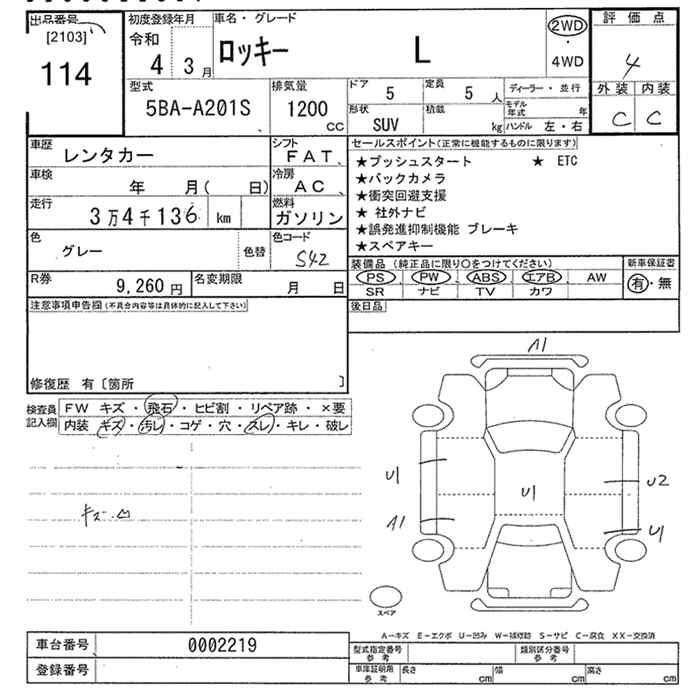 出品番号
[2103]
114
初度登録年月
令和
4 3月
車名・グレード
ロッキー L
2WD
・
4WD
評価点
4
外装 内装
C C
型式
5BA-A201S
排気量
1200
CC
ドア
5
定員
5 人
ディーラー・並行
形状
SUV
積載
kg
モデル年式 年
ハンドル 左・右
車歴
レンタカー
シフト
FAT
車検
年 月( 日)
冷房
AC
走行
3万4千136 km
燃料
ガソリン
色
グレー
色替
色コード
S42
R券
9,260 円
名変期限
月 日
セールスポイント(正常に機能するものに限ります)
★プッシュスタート ★ ETC
★バックカメラ
★衝突回避支援
★ 社外ナビ
★誤発進抑制機能 ブレーキ
★スペアキー
装備品 (純正品に限り○をつけてください)
PS PW ABS エアB AW
SR ナビ TV カワ
新車保証書
有・無
後日品
注意事項申告欄(不具合内容等は具体的に記入して下さい)
修復歴 有〔箇所 〕
検査員記入欄
FW キズ・飛石・ヒビ割・リペア跡・×要
内装 キズ・汚レ・コゲ・穴・スレ・キレ・破レ
A1
U1
U2
U1
A1
U1
スペア
A-キズ E-エクボ U-凹み W-補修跡 S-サビ C-腐食 XX-交換済
車台番号 0002219
登録番号
型式指定番号 参考
類別区分番号 参考
車庫証明用 参考 長さ cm 幅 cm 高さ cm